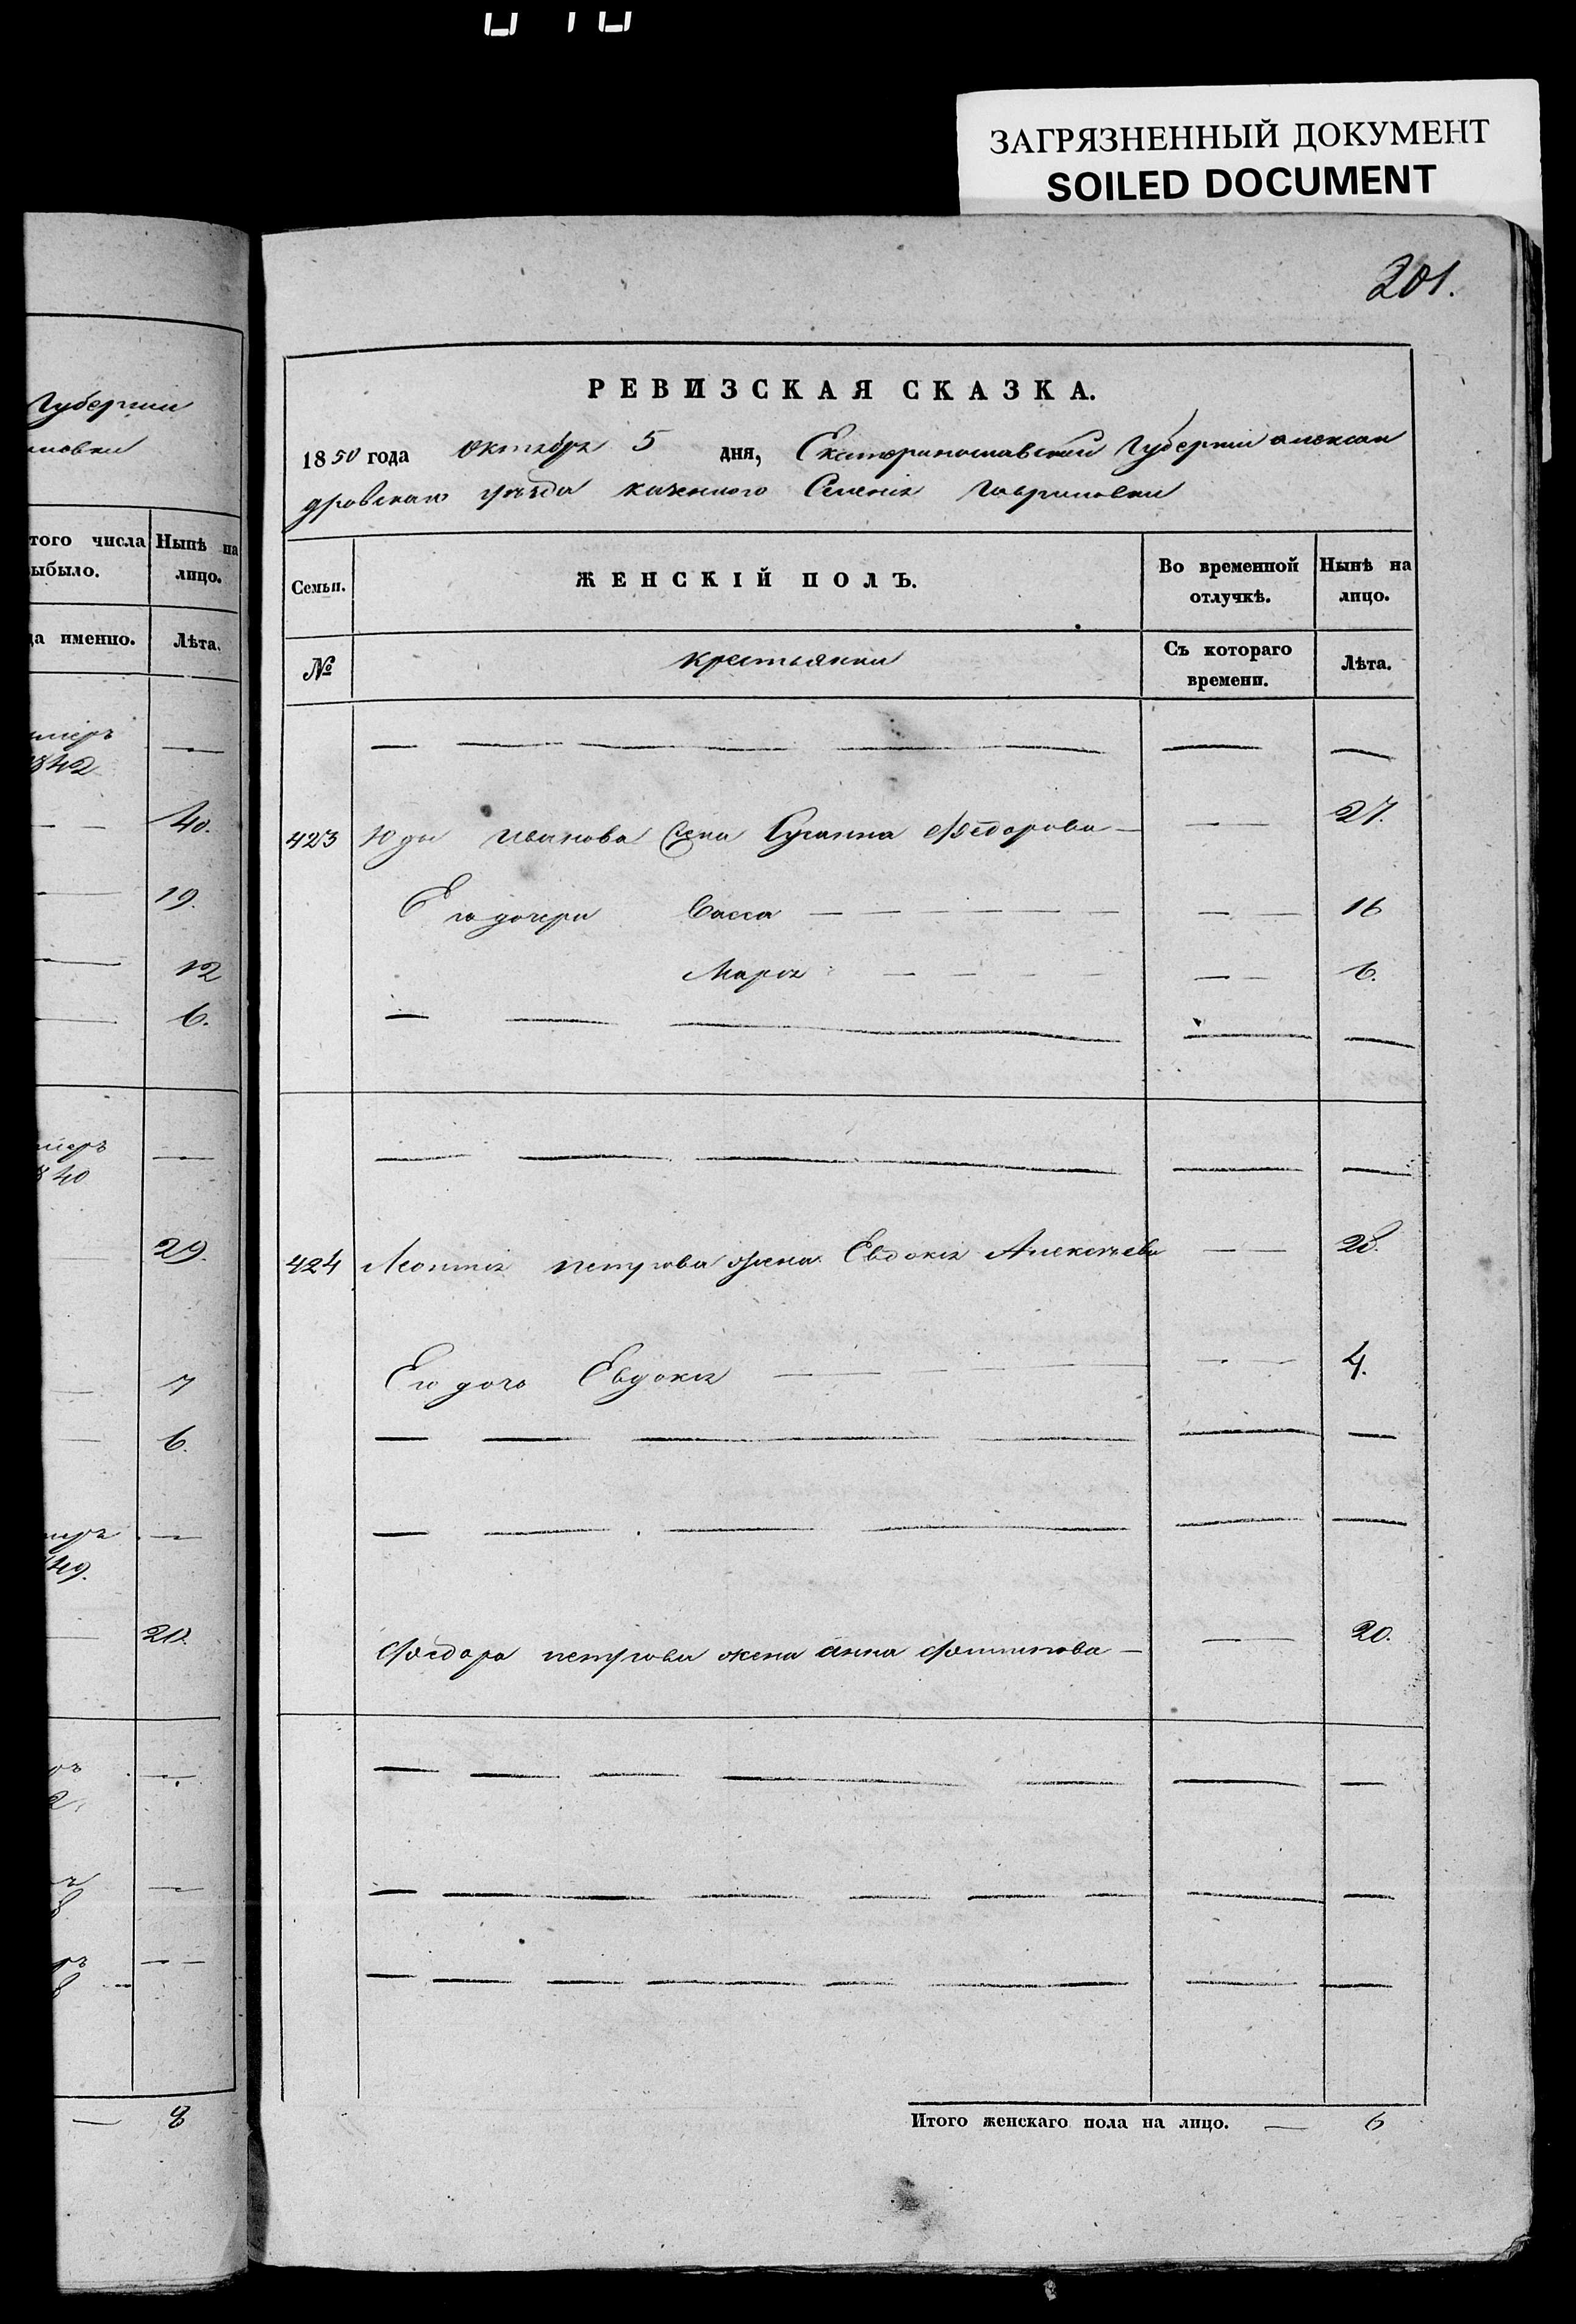 ЗАГРЯЗНЕННЫЙ ДОКУМЕНТ
SOILED DOCUMENT
201.
Губернии
того числа
выбыло.
Нынѣ на
лицо.
да именно.
Лѣта.
40.
19.
12
6.
29.
7
6.
8
РЕВИЗСКАЯ СКАЗКА.
1850 года Октября 5 дня, Екатеринославской Губернии Алексан
дровскаго уѣзда казенного Селенія Гавриловки
Семьи.
ЖЕНСКІЙ ПОЛЪ.
Во временной
отлучкѣ.
Нынѣ на
лицо.
№
крестьянки
Съ котораго
времени.
Лѣта.
423 Юды Иванова Жена Сусанна Федорова 27.
Его дочери Васса 16
Марья 6.
424 Леонтія Петрова жена Евдокія Алексѣева 28.
Его дочь Евдокія 4.
Федора Петрова жена Анна 20.
Итого женскаго пола на лицо. 6